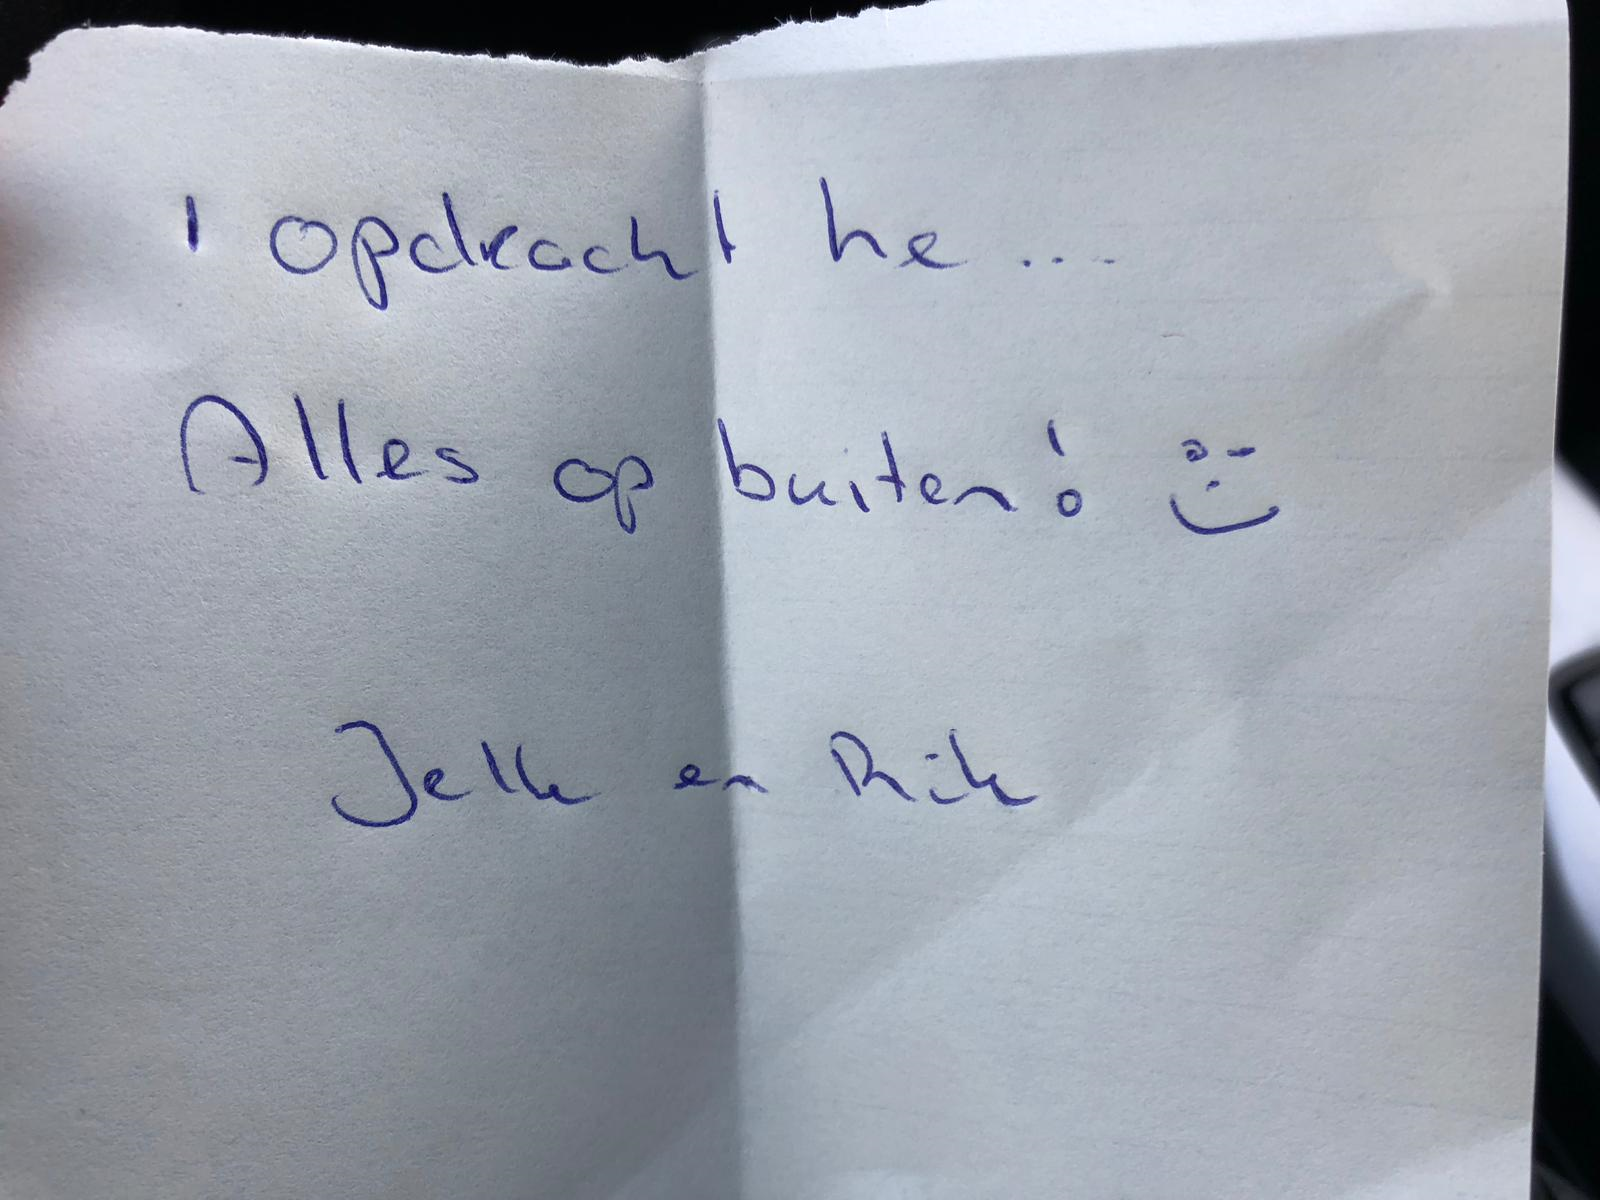 1 opdracht he ...
Alles op buiten!
Jelle en Rik